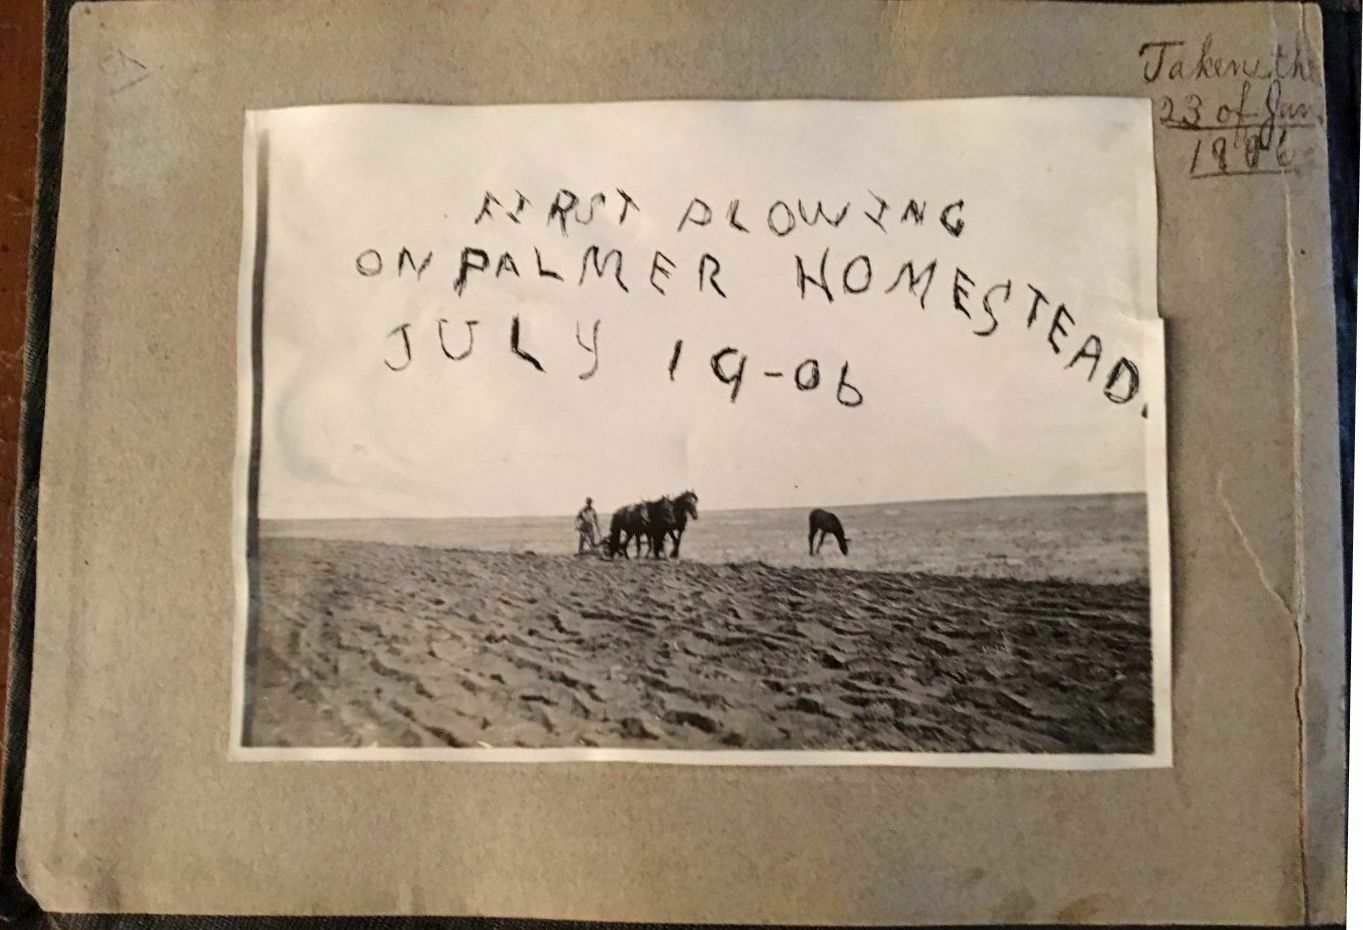 FIRST PLOWING
ON PALMER HOMESTEAD.
JULY 19-06
Taken the
23 of Jan.